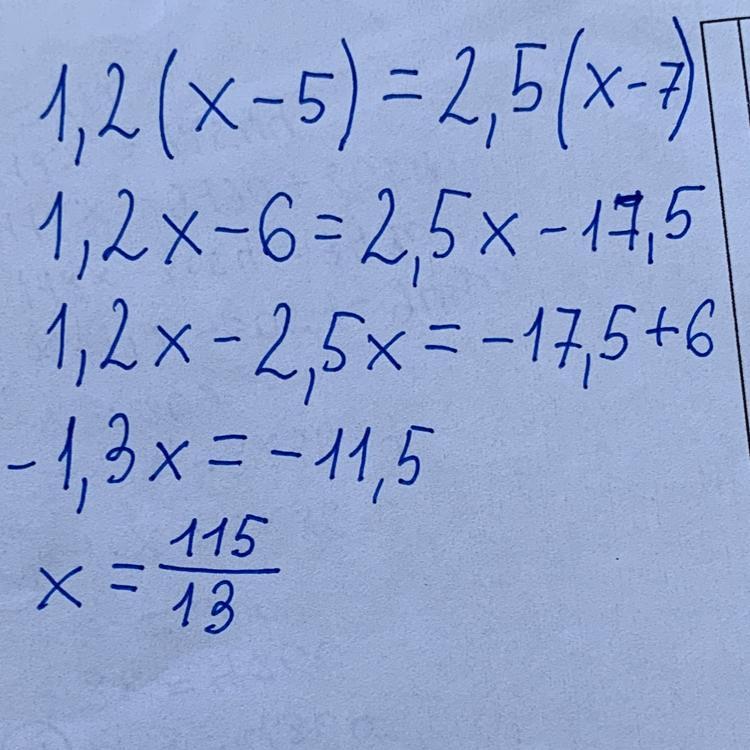 1,2(x-5)=2,5(x-7)
1,2x-6=2,5x-17,5
1,2x-2,5x=-17,5+6
-1,3x=-11,5
x=115/13